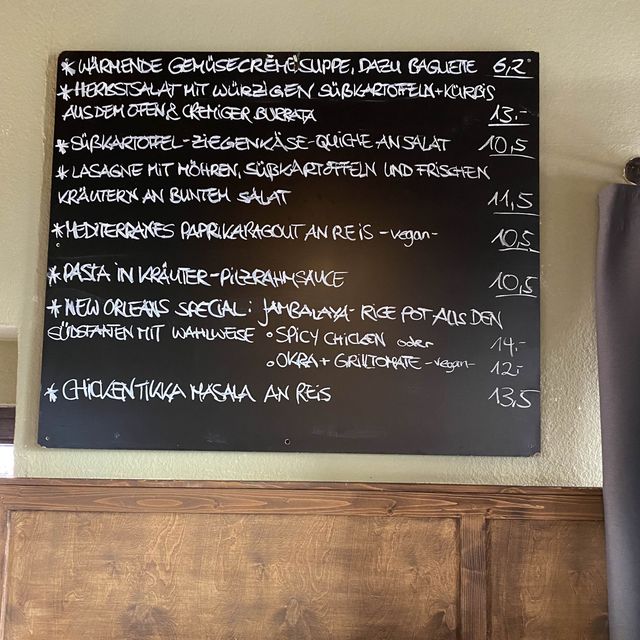 * WÄRMENDE GEMÜSECRÈMESUPPE, DAZU BAGUETTE 6,2
* HERBSTSALAT MIT WÜRZIGEN SÜßKARTOFFELN + KÜRBIS
AUS DEM OFEN & CREMIGER BURRATA 13.-
* SÜßKARTOFFEL-ZIEGENKÄSE-QUICHE AN SALAT 10,5
* LASAGNE MIT MÖHREN, SÜßKARTOFFELN UND FRISCHEN
KRÄUTERN AN BUNTEM SALAT 11,5
* MEDITERRANES PAPRIKARAGOUT AN REIS -vegan- 10,5
* PASTA IN KRÄUTER-PILZRAHMSAUCE 10,5
* NEW ORLEANS SPECIAL: JAMBALAYA- RICE POT AUS DEN
SÜDSTAATEN MIT WAHLWEISE • SPICY CHICKEN oder 14.-
• OKRA + GRILLTOMATE -vegan- 12.-
* CHICKEN TIKKA MASALA AN REIS 13,5